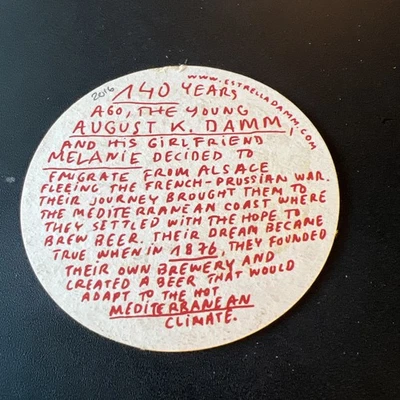 2016
www.ESTRELLADAMM.COM
140 YEARS
AGO, THE YOUNG
AUGUST K. DAMM,
AND HIS GIRLFRIEND
MELANIE DECIDED TO
EMIGRATE FROM ALSACE
FLEEING THE FRENCH-PRUSSIAN WAR.
THEIR JOURNEY BROUGHT THEM TO
THE MEDITERRANEAN COAST WHERE
THEY SETTLED WITH THE HOPE TO
BREW BEER. THEIR DREAM BECAME
TRUE WHEN IN 1876, THEY FOUNDED
THEIR OWN BREWERY AND
CREATED A BEER THAT WOULD
ADAPT TO THE HOT
MEDITERRANEAN
CLIMATE.